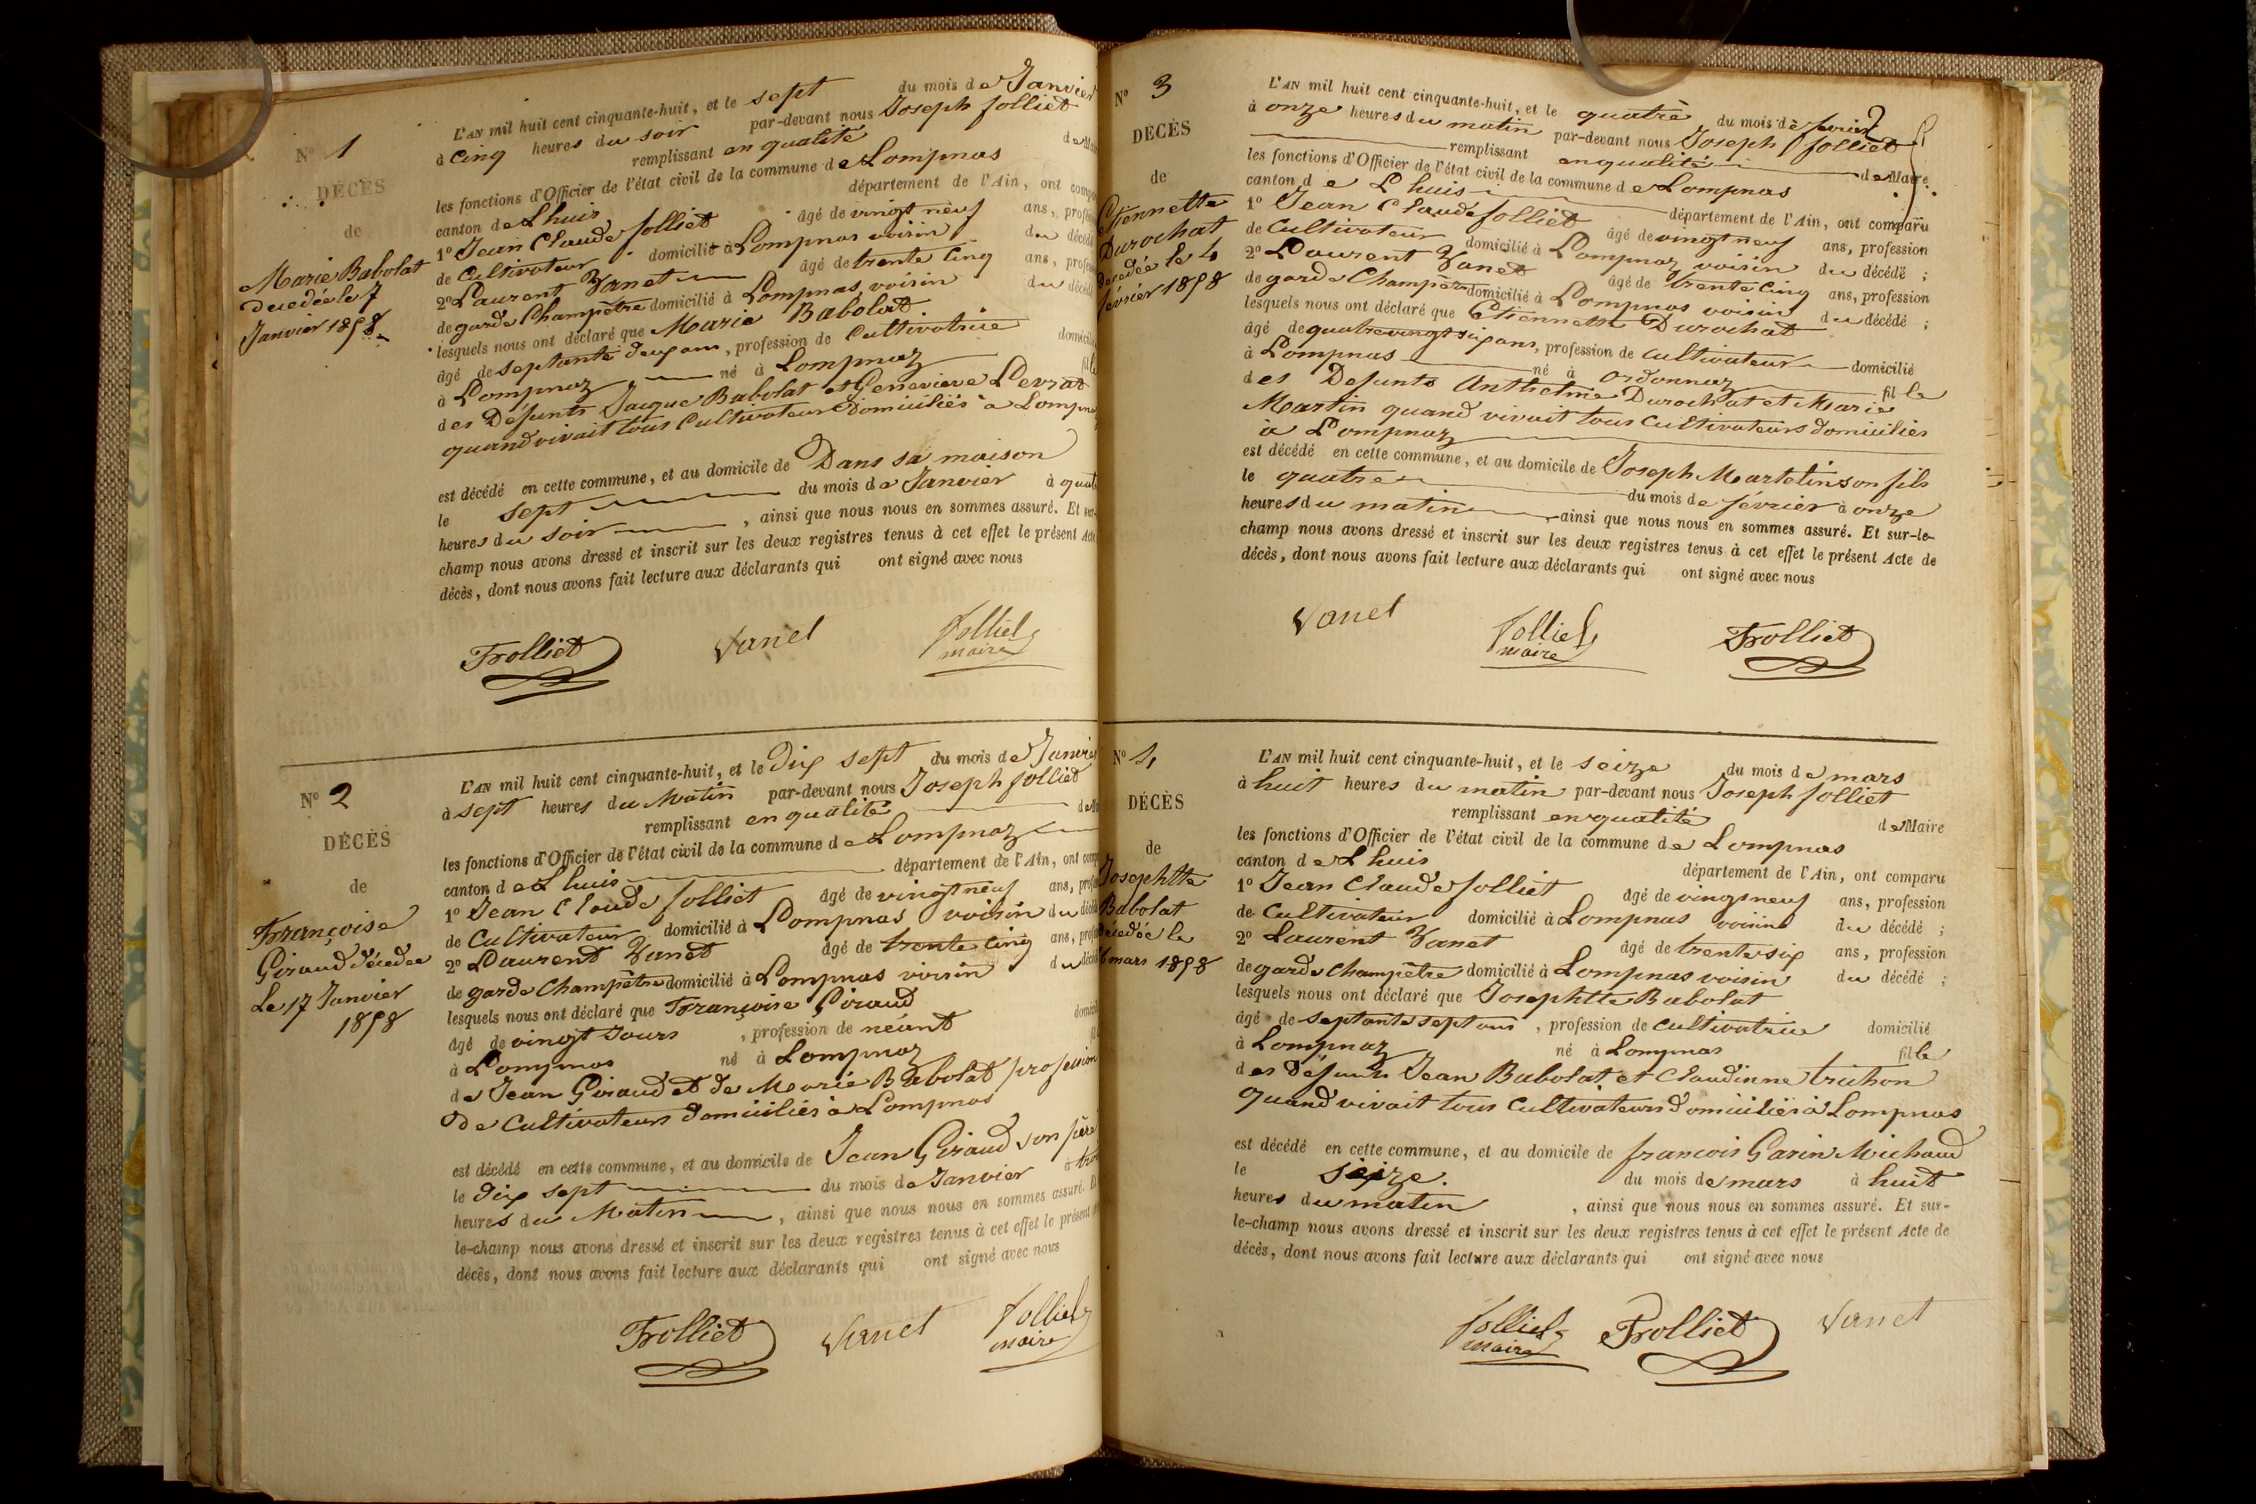 N° 1
DÉCÈS
de
Marie Babolat
décédée le 7
Janvier 1858
L'AN mil huit cent cinquante-huit, et le sept du mois de Janvier
à cinq heures du soir par-devant nous Joseph Jolliet
remplissant en qualité de
les fonctions d'Officier de l'état civil de la commune de Lompnas
canton de Lhuis département de l'Ain, ont
1° Jean Claude Jolliet âgé de vingt neuf ans,
de Cultivateur domicilié à Lompnas voisin du
2° Laurent Vanet âgé de trente cinq ans,
de garde Champêtre domicilié à Lompnas voisin du
lesquels nous ont déclaré que Marie Babolat
âgé de septante deux ans, profession de Cultivatrice
à Lompnaz né à Lompnaz
des Défunts Jacque Babolat et Genevieve Levrat
quand vivait tous Cultivateurs Domiciliés à
est décédé en cette commune, et au domicile de Dans sa maison
le sept du mois de Janvier à
heures du soir, ainsi que nous nous en sommes assuré. Et sur-
champ nous avons dressé et inscrit sur les deux registres tenus à cet effet le présent Acte
décès, dont nous avons fait lecture aux déclarants qui ont signé avec nous
Trolliet Vanet Jolliet
maire
N° 2
DÉCÈS
de
Françoise
Giraud décedee
Le 17 Janvier
1858
L'AN mil huit cent cinquante-huit, et le Dix sept du mois de
à sept heures du Matin par-devant nous Joseph Jolliet
remplissant en qualité
les fonctions d'Officier de l'état civil de la commune de Lompnaz
canton de Lhuis département de l'Ain, ont
1° Jean Claude Jolliet âgé de vingt neuf ans,
de Cultivateur domicilié à Lompnas voisin du
2° Laurent Vanet âgé de trente cinq ans,
de garde Champêtre domicilié à Lompnas voisin du
lesquels nous ont déclaré que Françoise Giraud
âgé de vingt Jours, profession de néant
à Lompnas né à Lompnaz
de Jean Giraud et de Marie Babolat profession
De Cultivateurs domiciliés à Lompnas
est décédé en cette commune, et au domicile de Jean Giraud son père
le Dix sept du mois de Janvier à
heures du Matin, ainsi que nous nous en sommes assuré.
le-champ nous avons dressé et inscrit sur les deux registres tenus à cet effet le présent
décès, dont nous avons fait lecture aux déclarants qui ont signé avec nous
Trolliet Vanet Jolliet
maire
N° 3
DÉCÈS
de
Etiennette
Durochat
décédée le 4
février 1858
L'AN mil huit cent cinquante-huit, et le quatre du mois de février
à onze heures du matin par-devant nous Joseph Jolliet
remplissant en qualité de Maire
les fonctions d'Officier de l'état civil de la commune de Lompnas
canton de Lhuis département de l'Ain, ont comparu
1° Jean Claude Jolliet âgé de vingt neuf ans, profession
de Cultivateur domicilié à Lompnaz voisin du décédé ;
2° Laurent Vanet âgé de trente cinq ans, profession
de garde Champêtre domicilié à Lompnas voisin du décédé ;
lesquels nous ont déclaré que Etiennette Durochat
âgé de quatre vingt six ans, profession de cultivateur domicilié
à Lompnas né à ordonnaz fille
des Defunts Anthelme Durochat et Marie
Martin quand vivait tous Cultivateurs domiciliés
à Lompnaz
est décédé en cette commune, et au domicile de Joseph Martelin son fils
le quatre du mois de février à onze
heures du matin, ainsi que nous nous en sommes assuré. Et sur-le-
champ nous avons dressé et inscrit sur les deux registres tenus à cet effet le présent Acte de
décès, dont nous avons fait lecture aux déclarants qui ont signé avec nous
Vanet Jolliet Trolliet
maire
N° 4
DÉCÈS
de
Josephtte
Babolat
décedée le
mars 1858
L'AN mil huit cent cinquante-huit, et le seize du mois de mars
à huit heures du matin par-devant nous Joseph Jolliet
remplissant en qualité de Maire
les fonctions d'Officier de l'état civil de la commune de Lompnas
canton de Lhuis département de l'Ain, ont comparu
1° Jean Claude Jolliet âgé de vingt neuf ans, profession
de Cultivateur domicilié à Lompnas voisin du décédé ;
2° Laurent Vanet âgé de trente six ans, profession
de garde Champêtre domicilié à Lompnas voisin du décédé ;
lesquels nous ont déclaré que Josephtte Babolat
âgé de septante sept ans, profession de cultivatrice domicilié
à Lompnaz né à Lompnas fille
des Défunts Jean Babolat et Claudinne truchon
quand vivait tous Cultivateurs domiciliés à Lompnas
est décédé en cette commune, et au domicile de francois Garin Michaud
le seize. du mois de mars à huit
heures du matin, ainsi que nous nous en sommes assuré. Et sur-
le-champ nous avons dressé et inscrit sur les deux registres tenus à cet effet le présent Acte de
décès, dont nous avons fait lecture aux déclarants qui ont signé avec nous
Jolliet Trolliet Vanet
maire